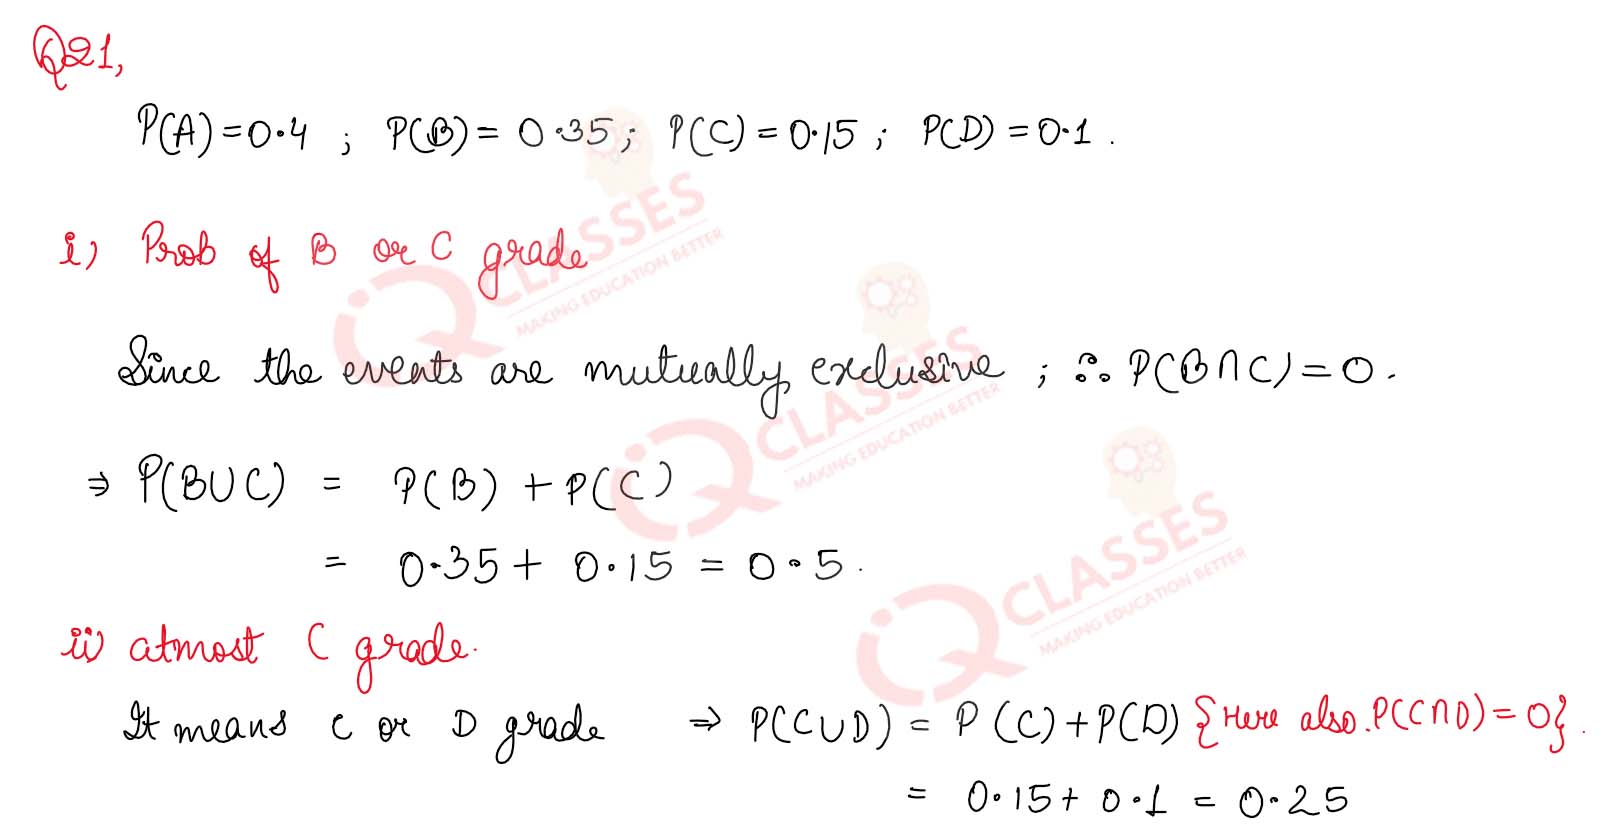 Q21,
P(A)=0.4 ; P(B)= 0.35; P(C)=0.15 ; P(D)=0.1.
i) Prob of B or C grade
Since the events are mutually exclusive ; ∴ P(B∩C)=0.
⇒ P(B∪C) = P(B) + P(C)
= 0.35+ 0.15 = 0.5.
ii) atmost C grade.
It means C or D grade ⇒ P(C∪D) = P(C)+P(D) {Here also. P(C∩D)=0}.
= 0.15+ 0.1 = 0.25
IQ CLASSES
MAKING EDUCATION BETTER
IQ CLASSES
MAKING EDUCATION BETTER
IQ CLASSES
MAKING EDUCATION BETTER